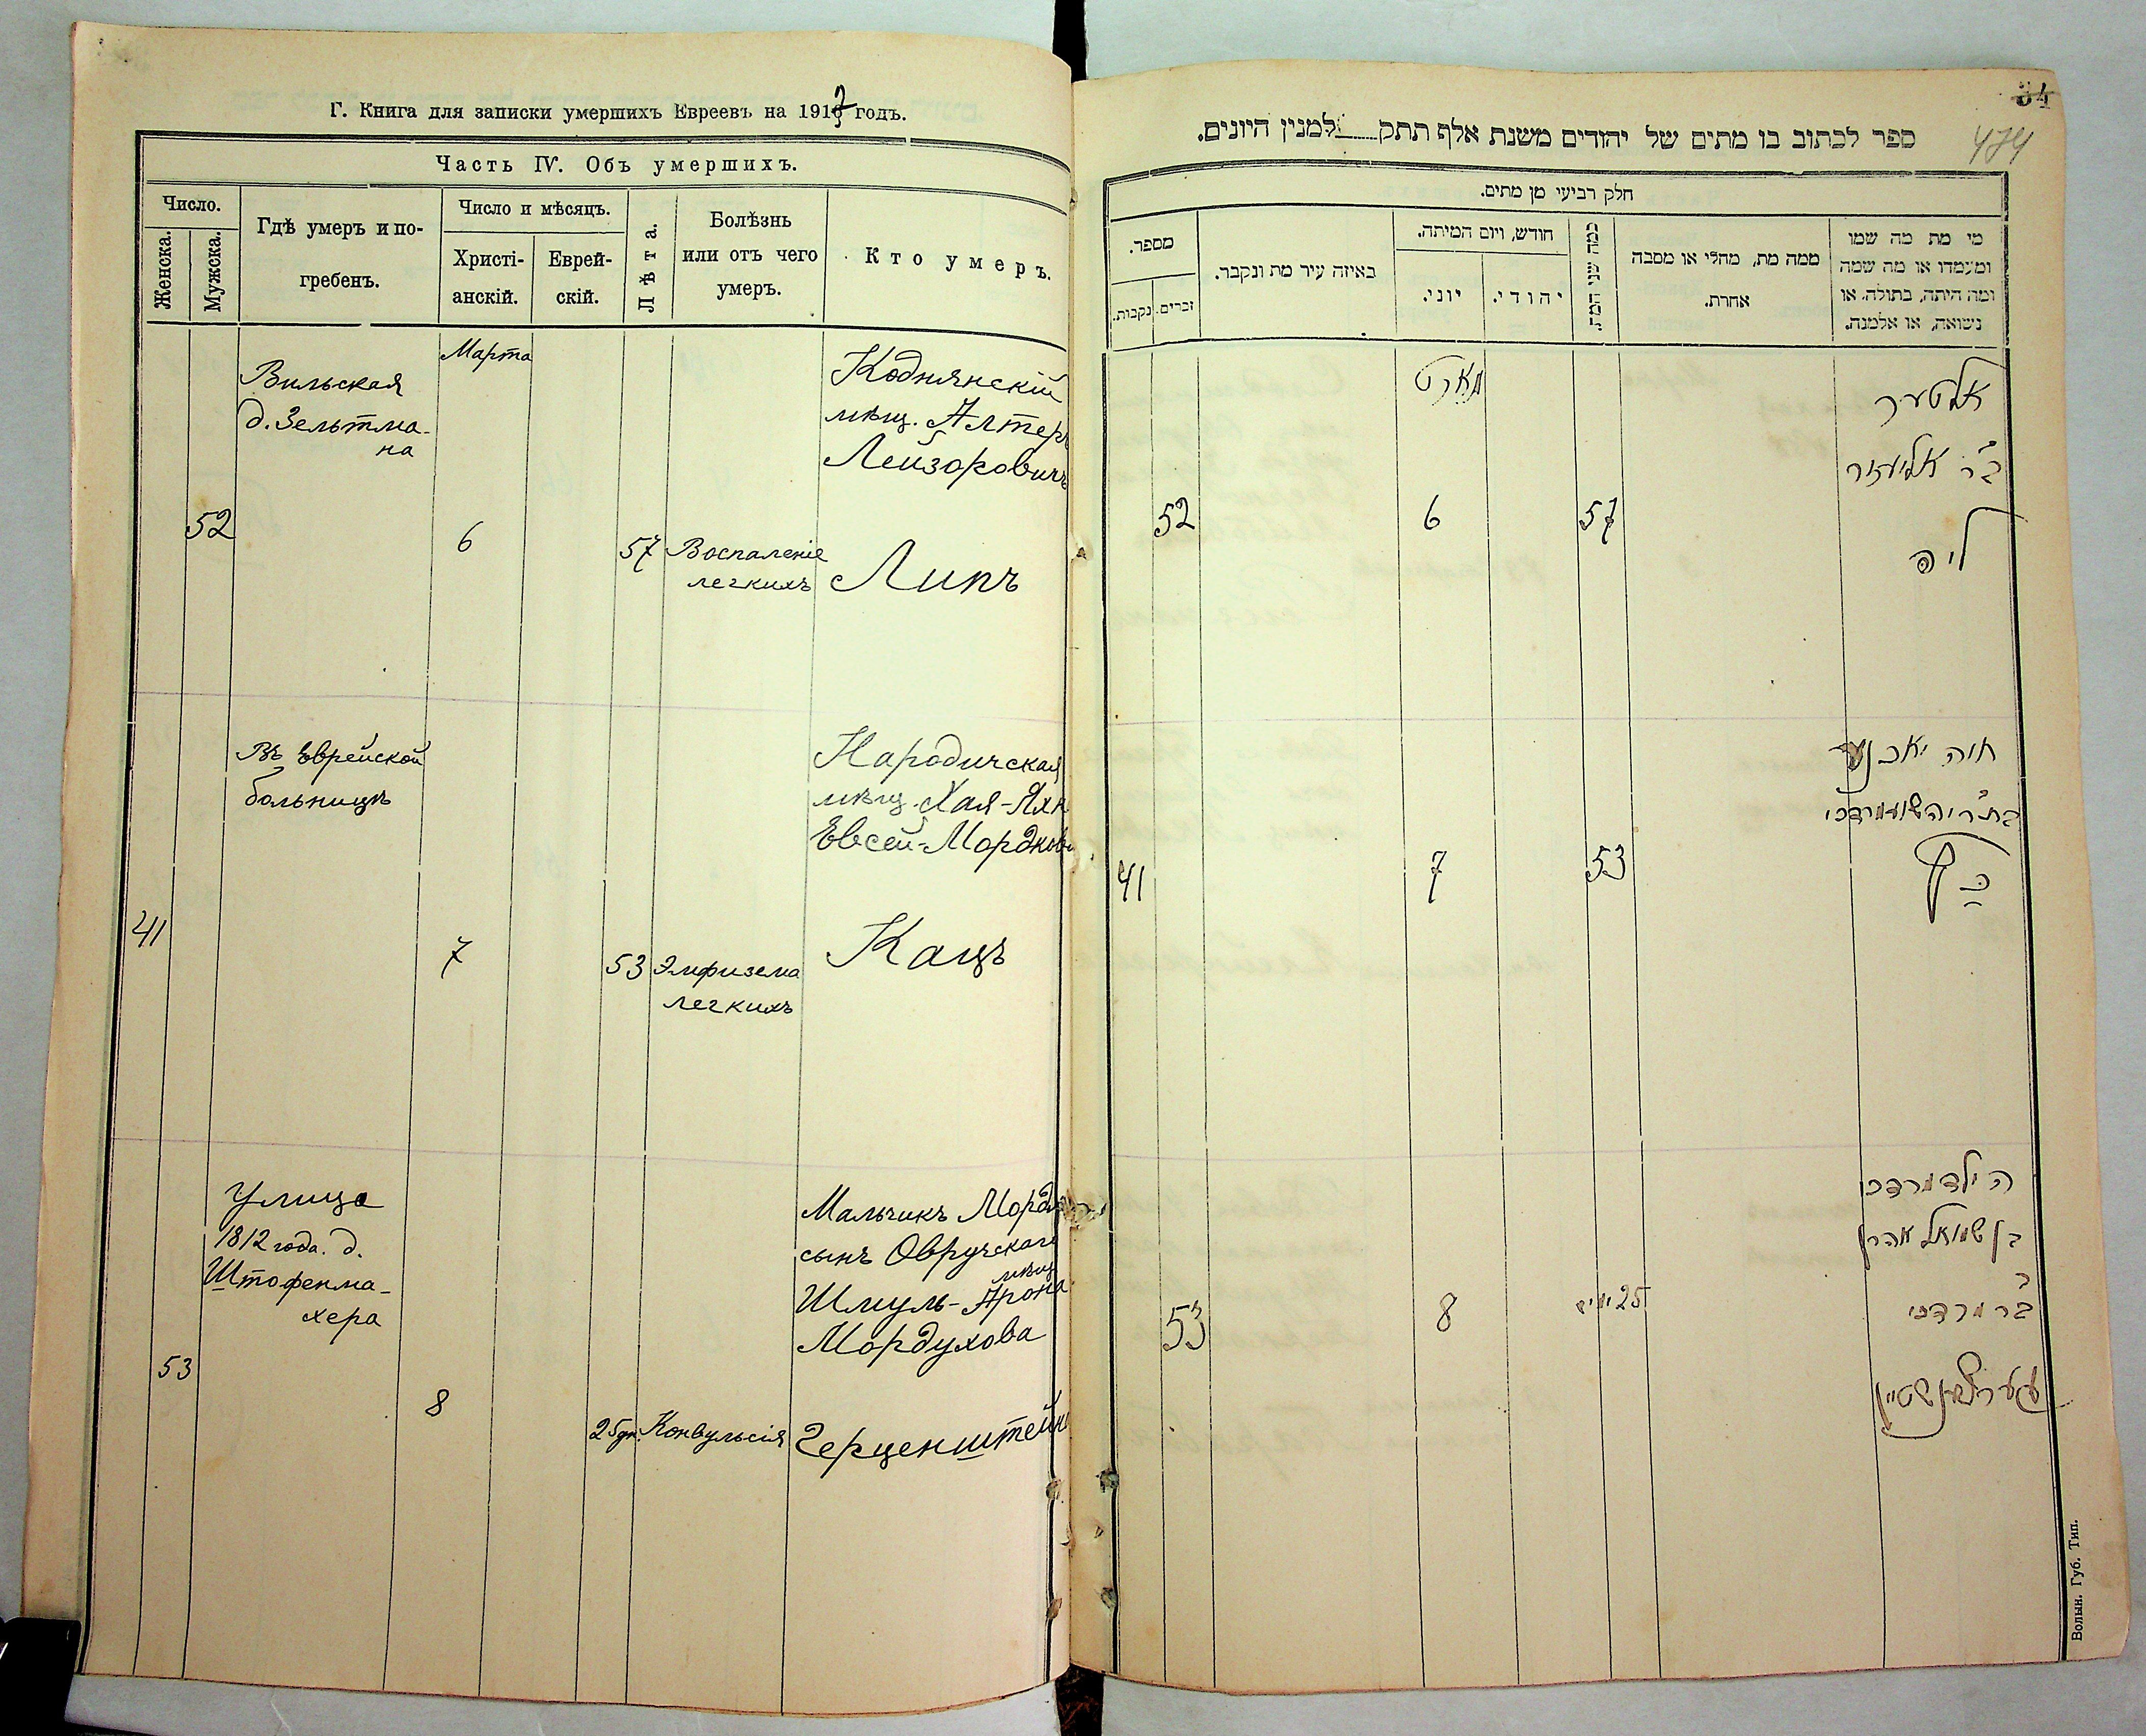 Г. Книга для записки умершихъ Евреевъ на 1917 годъ.
Часть IV. Объ умершихъ.
Число.
Женска.
Мужска.
Гдѣ умеръ и по-
гребенъ.
Число и мѣсяцъ.
Христі-
анскій.
Еврей-
скій.
Лѣта.
Болѣзнь
или отъ чего
умеръ.
Кто умеръ.
Марта
Вильская
д. Зельтма-
на
52
6
57
Воспаленіе
легкихъ
Коднянскій
мѣщ. Алтеръ
Лейзоровичъ
Липъ
Въ Еврейской
больницѣ
41
7
53
Эмфизема
легкихъ
Народичская
мѣщ. Хая-Яхн
Евсей-Мордков
Кацъ
Улица
1812 года. д.
Штофенма-
хера
53
8
25 дн.
Конвульсія
Мальчикъ Мордк
сынъ Овручскаго
мѣщ
Шмуль-Арона
Мордухова
Герценштейн
34
474
ספר לכתוב בו מתים של יהודים משנת אלף תתק למנין היונים.
חלק רביעי מן מתים.
מספר.
נקבות.
זכרים.
באיזה עיר מת ונקבר.
חודש, ויום המיתה.
יוני.
יהודי.
כמה שני המת.
ממה מת, מחלי או מסבה
אחרת.
מי מת מה שמו
ומעמדו או מה שמה
ומה היתה, בתולה, או
נשואה, או אלמנה.
מארט
אלטער
ב״ר אליעזר
ליפ
52
6
57
חיה יאכנע
בת ר׳ יהושע מרדכי
כ״ץ
41
7
53
הילד מרדכי
בן שמואל אהרן
ב״ר מרדכי
הערצענשטיין
53
8
25 ימים
Волын. Губ. Тип.